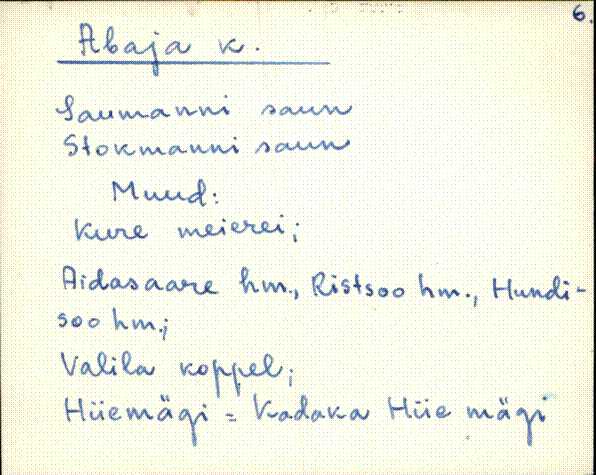 6.
Abaja k.
Saumanni saun
Stokmanni saun
Muud:
Kure meierei;
Aidasaare hm., Ristsoo hm., Hundi-
soo hm.;
Valila koppel;
Hiiemägi = Kadaka Hiie mägi